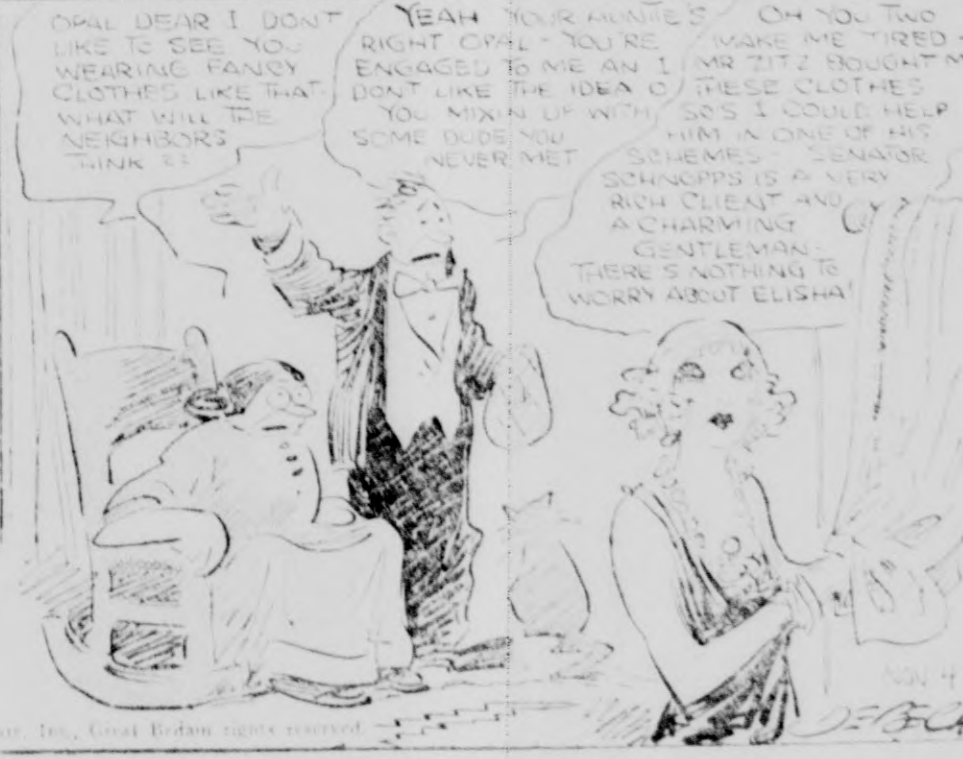 OPAL DEAR I DONT
LIKE TO SEE YOU
WEARING FANCY
CLOTHES LIKE THAT
WHAT WILL THE
NEIGHBORS
THINK ??
YEAH YOUR AUNTIE'S
RIGHT OPAL - YOU'RE
ENGAGED TO ME AN I
DONT LIKE THE IDEA O
YOU MIXIN UP WITH
SOME DUDE YOU
NEVER MET
OH YOU TWO
MAKE ME TIRED -
MR ZITZ BOUGHT M
THESE CLOTHES
SO'S I COULD HELP
HIM IN ONE OF HIS
SCHEMES - SENATOR
SCHNOPPS IS A VERY
RICH CLIENT AND
A CHARMING
GENTLEMAN -
THERE'S NOTHING TO
WORRY ABOUT ELISHA!
NOV 4
DEBECK
Inc., Great Britain rights reserved.